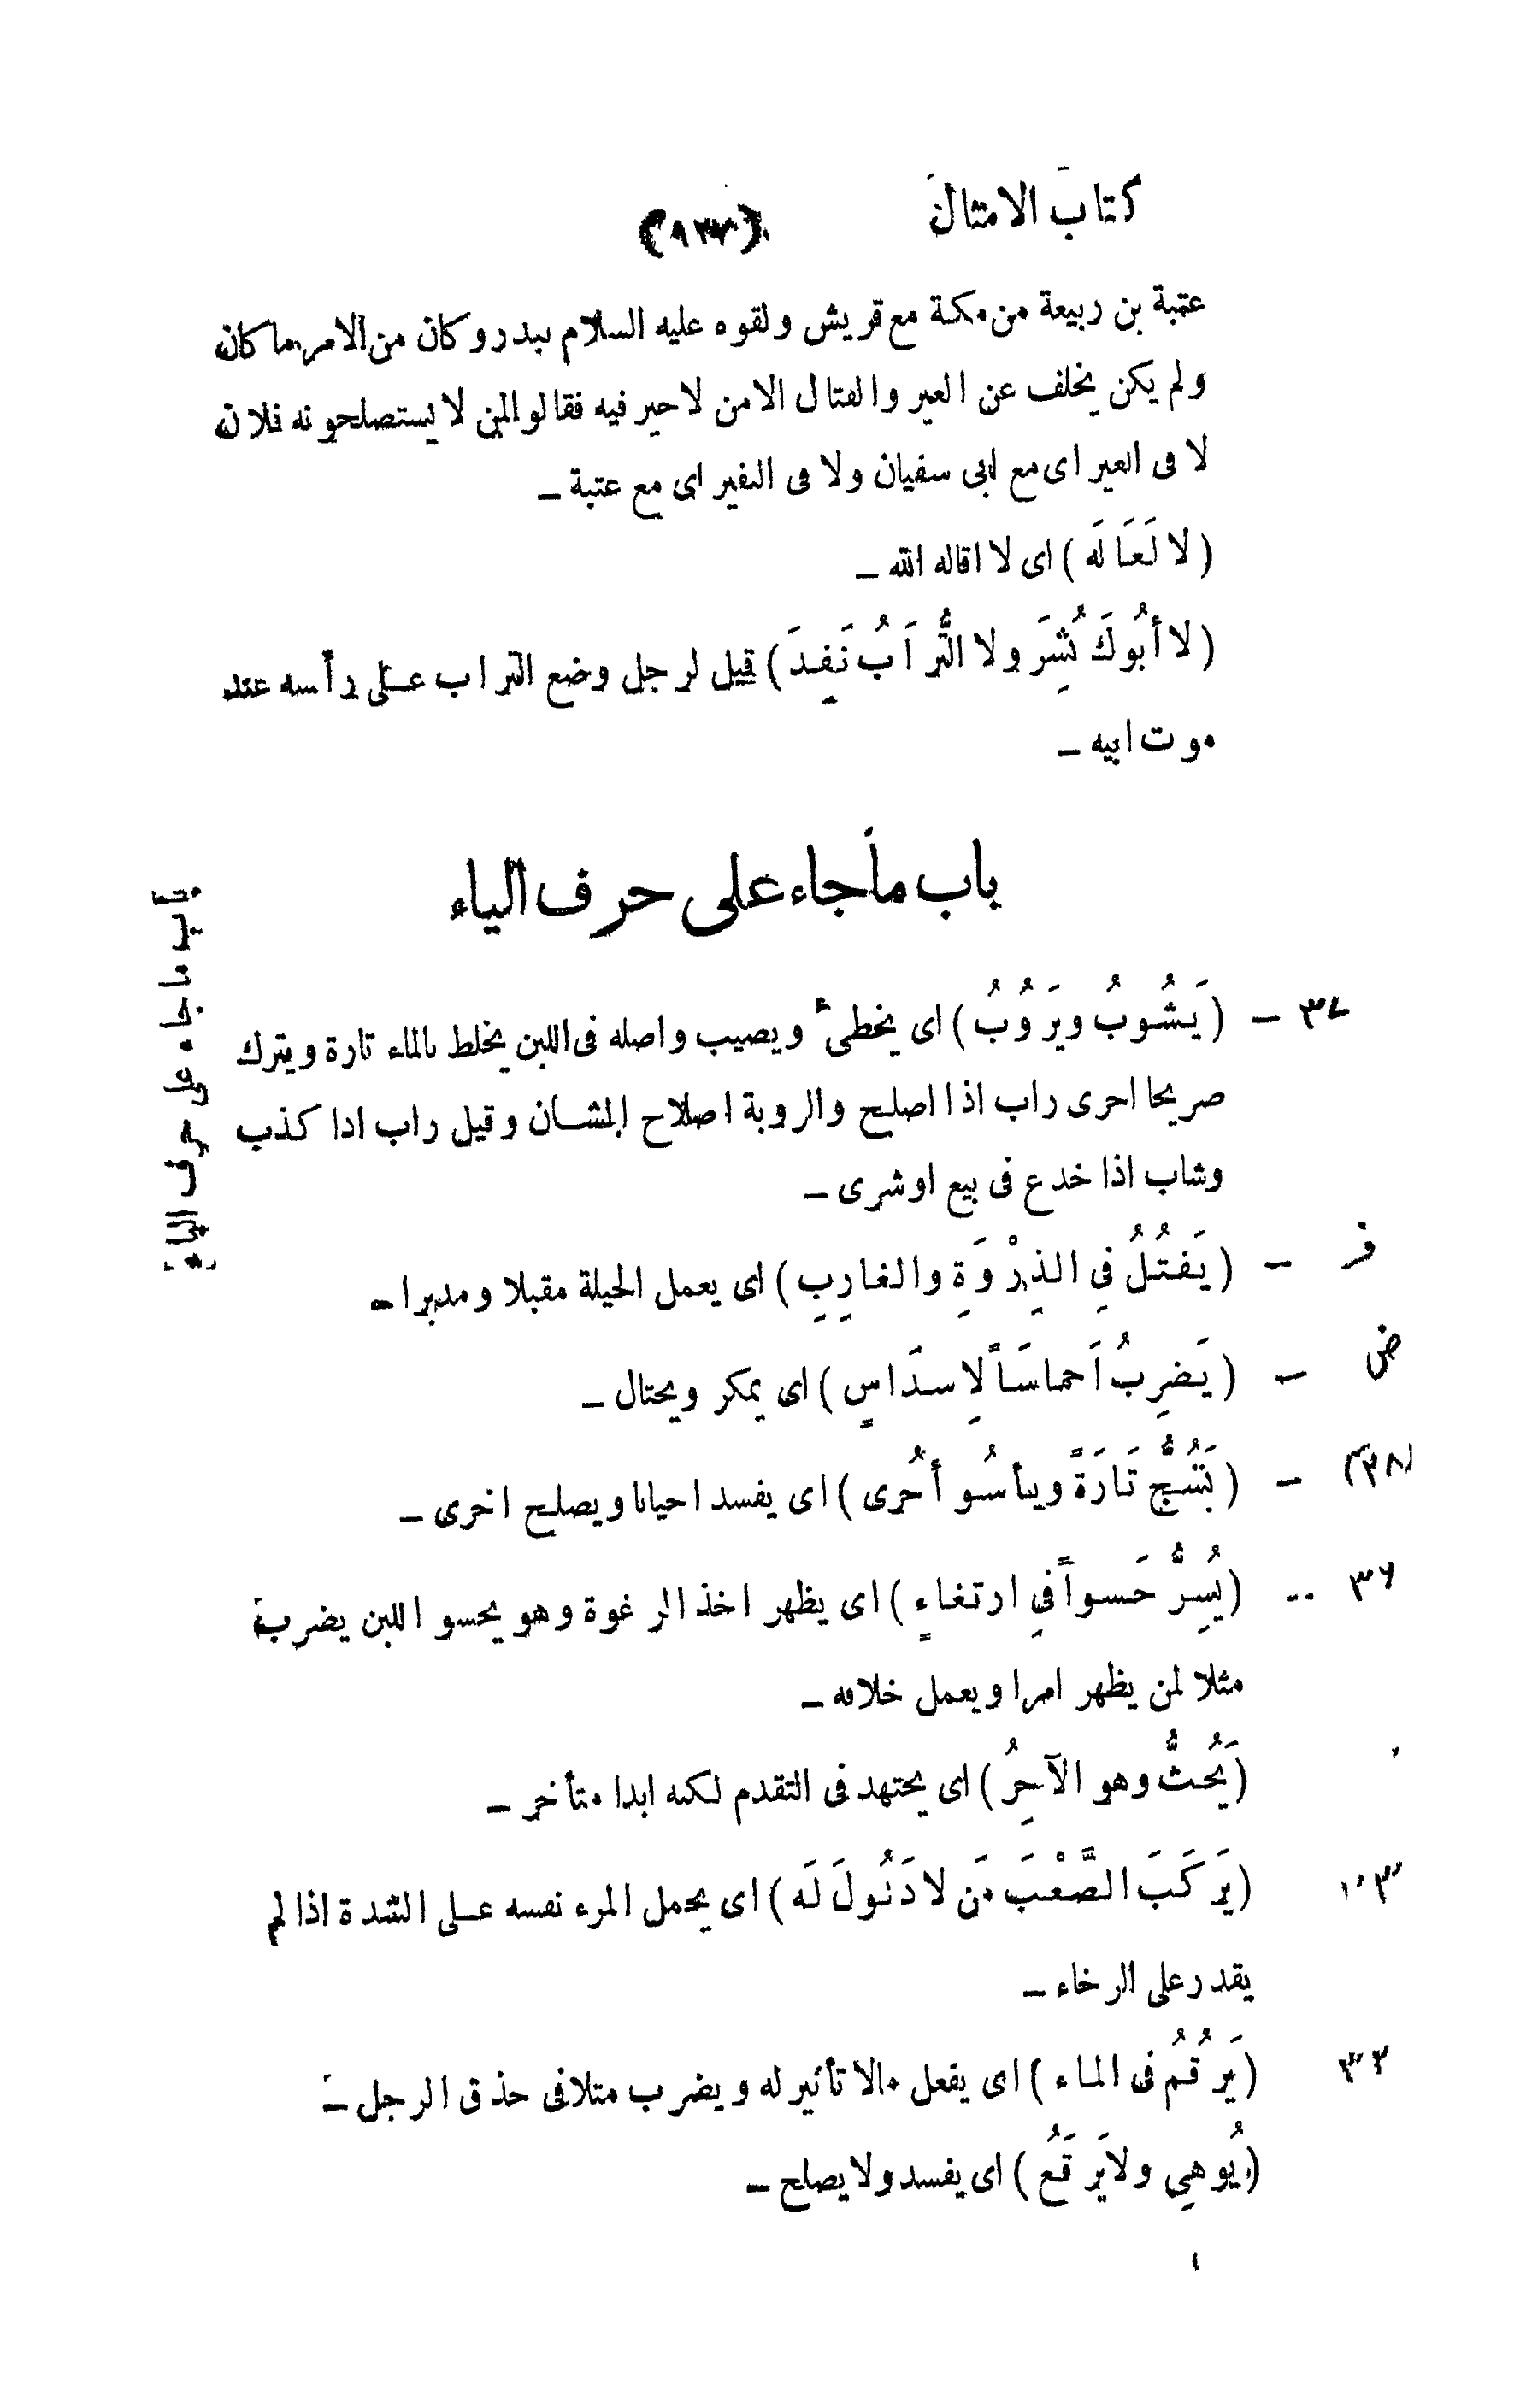 كتاب الامثال
(١٣٧)
عتبة بن ربيعة من مكة مع قريش ولقوه عليه السلام ببدر وكان من الامر ما كان
ولم يكن يخلف عن العير والقتال الا من لا خير فيه فقالوا لمن لا يستصلحونه فلان
لا فى العير اى مع ابى سفيان ولا فى النفير اى مع عتبة –
(لا لَعَا لَه) اى لا اقاله الله –
(لا أبُوكَ نُشِرَ ولا التُّرَابُ نَفِدَ) قيل لرجل وضع التراب على رأسه عند
موت ابيه –
باب ما جاء على حرف الياء
باب ما جاء على حرف الياء
٣٤ – (يَشُوبُ ويَرُوبُ) اى يخطئ ويصيب واصله فى اللبن يخلط بالماء تارة ويترك
صريحا اخرى راب اذا اصلح والروبة اصلاح الشان وقيل راب اذا كذب
وشاب اذا خدع فى بيع او شرى –
ف – (يَفتُلُ فِى الذِرْوَةِ والغارِبِ) اى يعمل الحيلة مقبلا ومدبرا –
ض – (يَضرِبُ اَخماسَاً لِاسدَاسٍ) اى يمكر ويحتال –
(٣٨) – (يَشُجُّ تَارَةً ويأسُو أُخرى) اى يفسد احيانا ويصلح اخرى –
٣٦ (يُسِرُّ حَسواً فِى ارتغاءٍ) اى يظهر اخذ الرغوة وهو يحسو اللبن يضرب
مثلا لمن يظهر امرا ويعمل خلافه –
(يَحُثُّ وهو الآخِرُ) اى يجتهد فى التقدم لكنه ابدا متأخر –
(يَركَبَ الصَّعْبَ مَن لا ذَلُولَ لَه) اى يحمل المرء نفسه على الشدة اذا لم
يقدر على الرخاء –
٣٢ (يَرقُمُ فى الماء) اى يفعل مالا تأثير له ويضرب مثلا فى حذق الرجل –
(يُوهِى ولا يَرقَعُ) اى يفسد ولا يصلح –